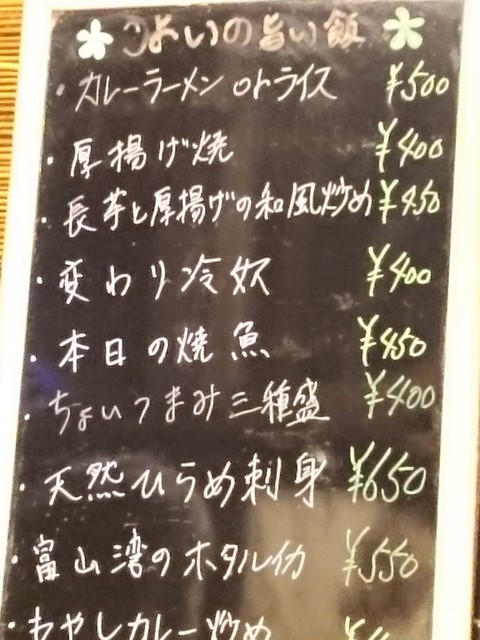 よいの旨い飯
・カレーラーメン orライス ¥500
・厚揚げ焼 ¥400
・長芋と厚揚げの和風炒め ¥450
・変わり冷奴 ¥400
・本日の焼魚 ¥450
・ちょいつまみ三種盛 ¥400
・天然ひらめ刺身 ¥650
・富山湾のホタルイカ ¥550
・もやしカレー炒め